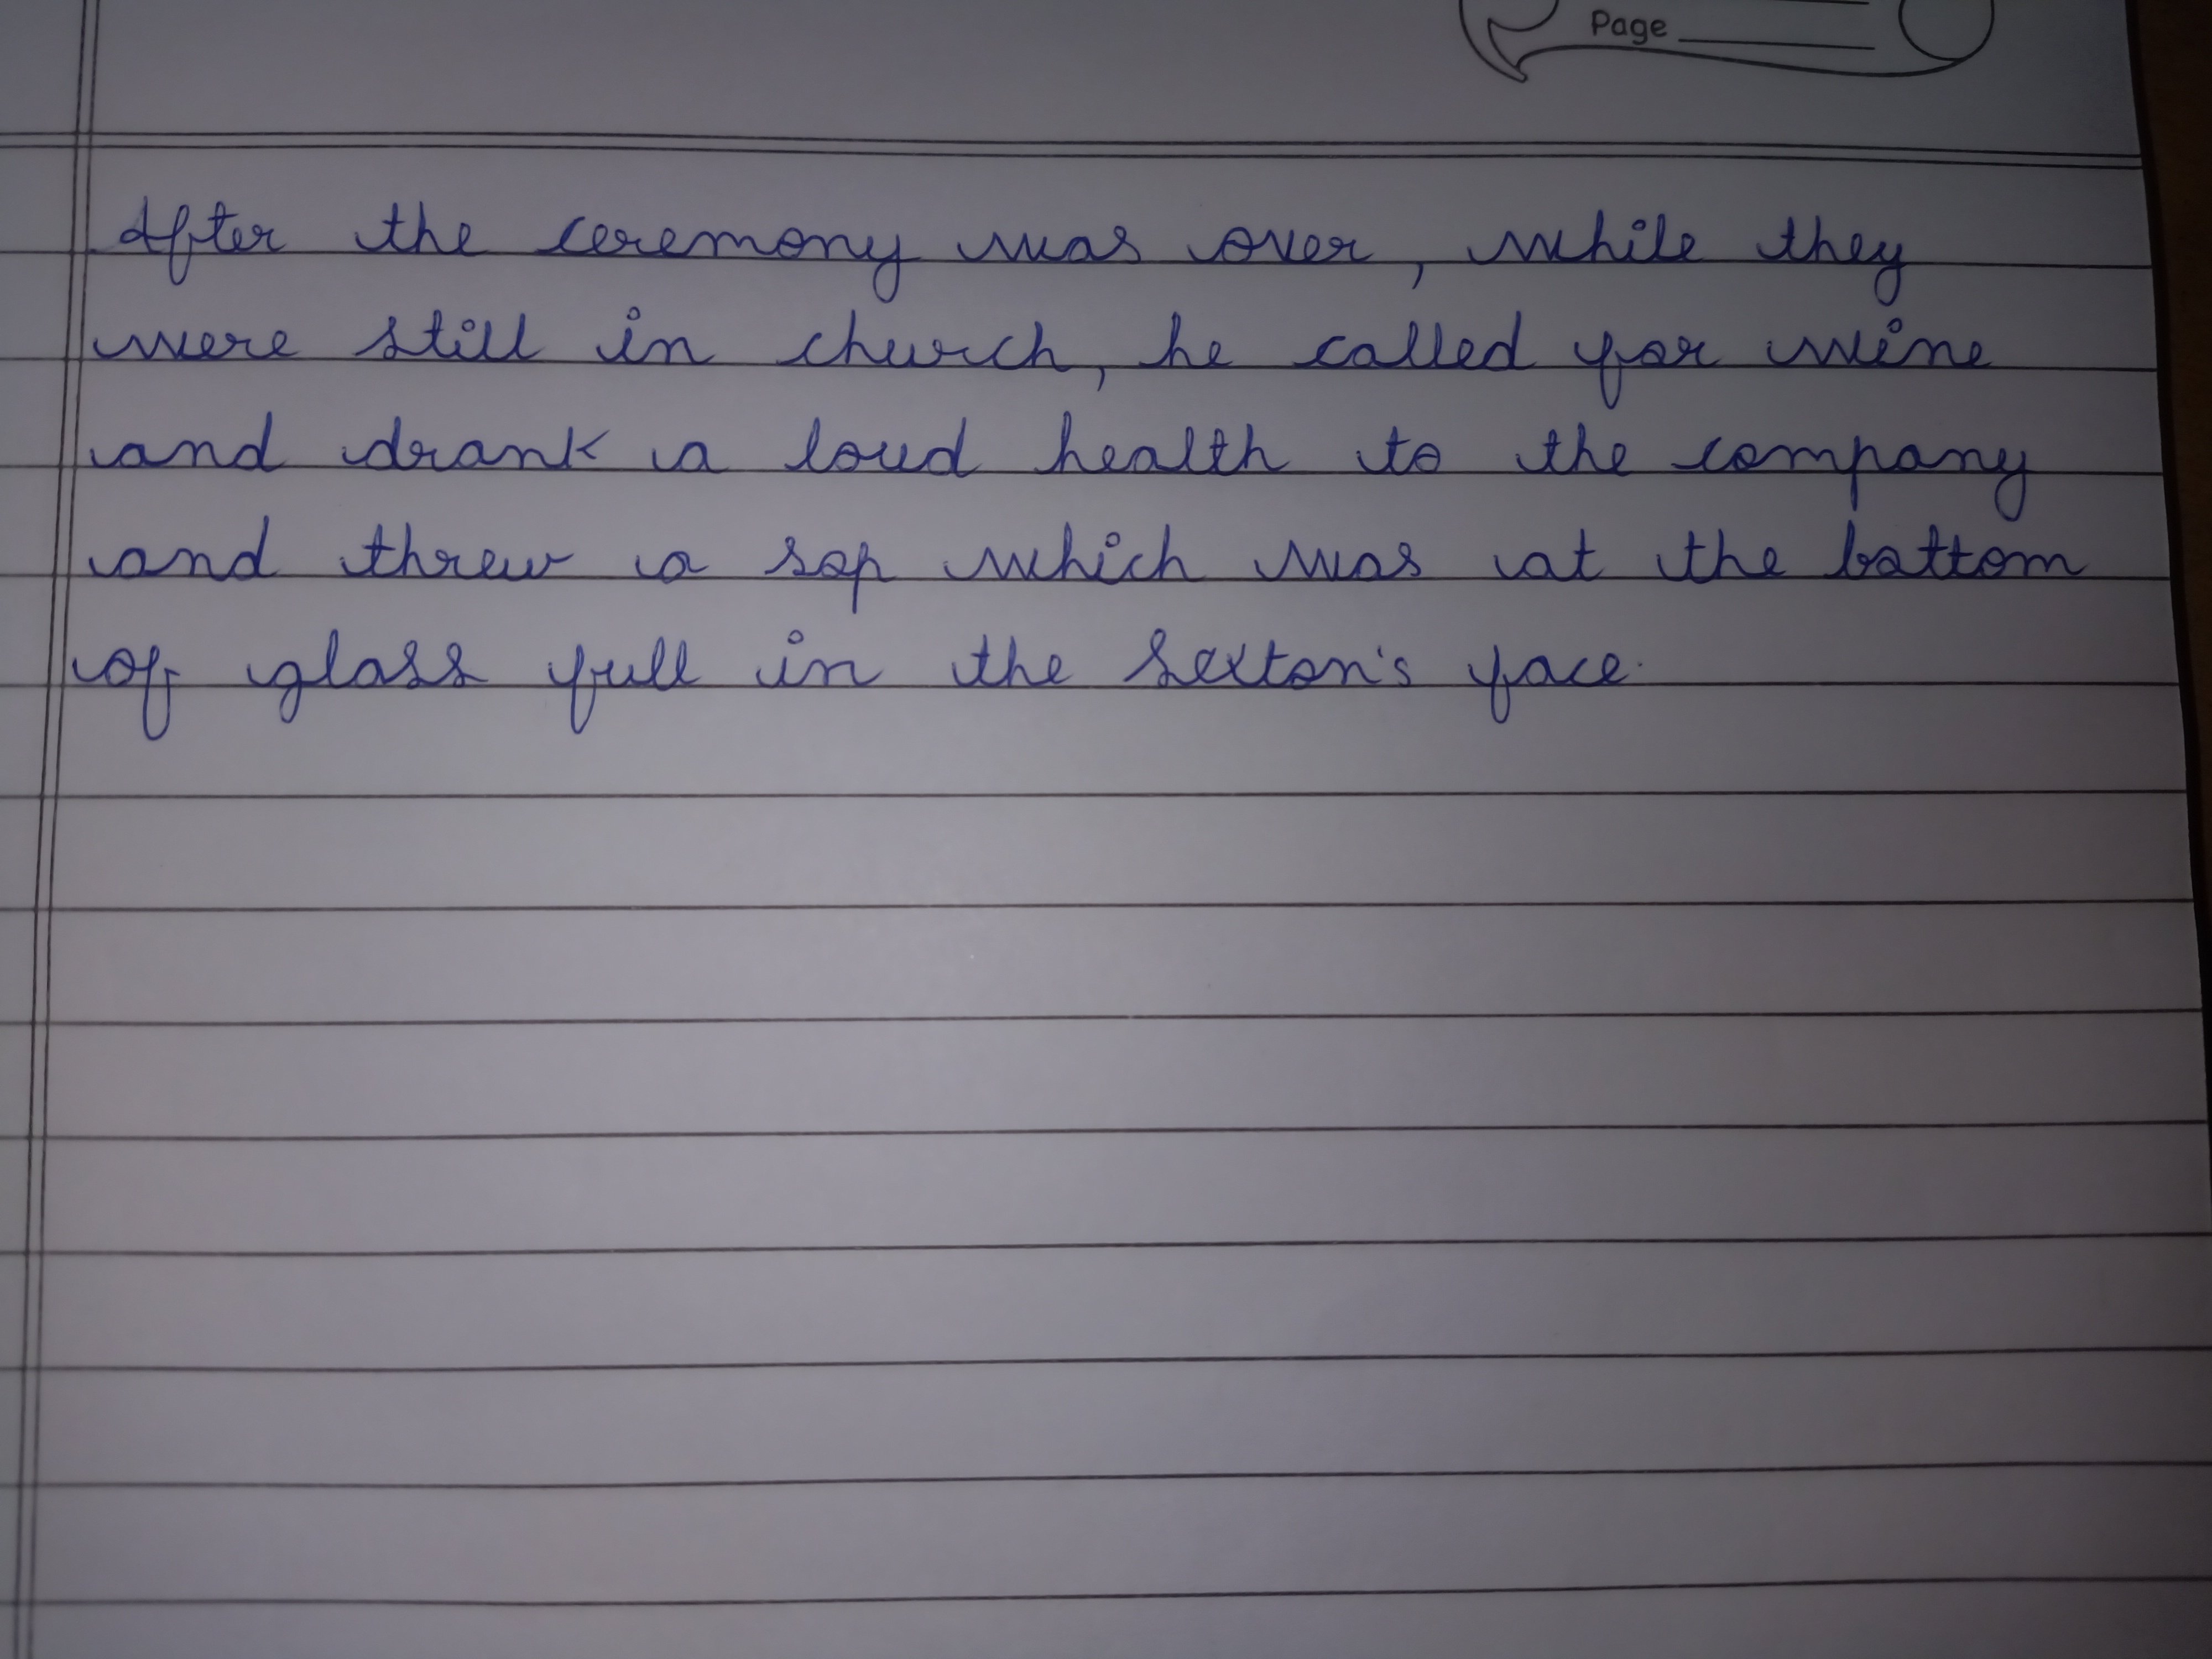 Page
After the ceremony was over, while they
were still in church, he called for wine
and drank a loud health to the company
and threw a sop which was at the bottom
of glass full in the sexton's face.